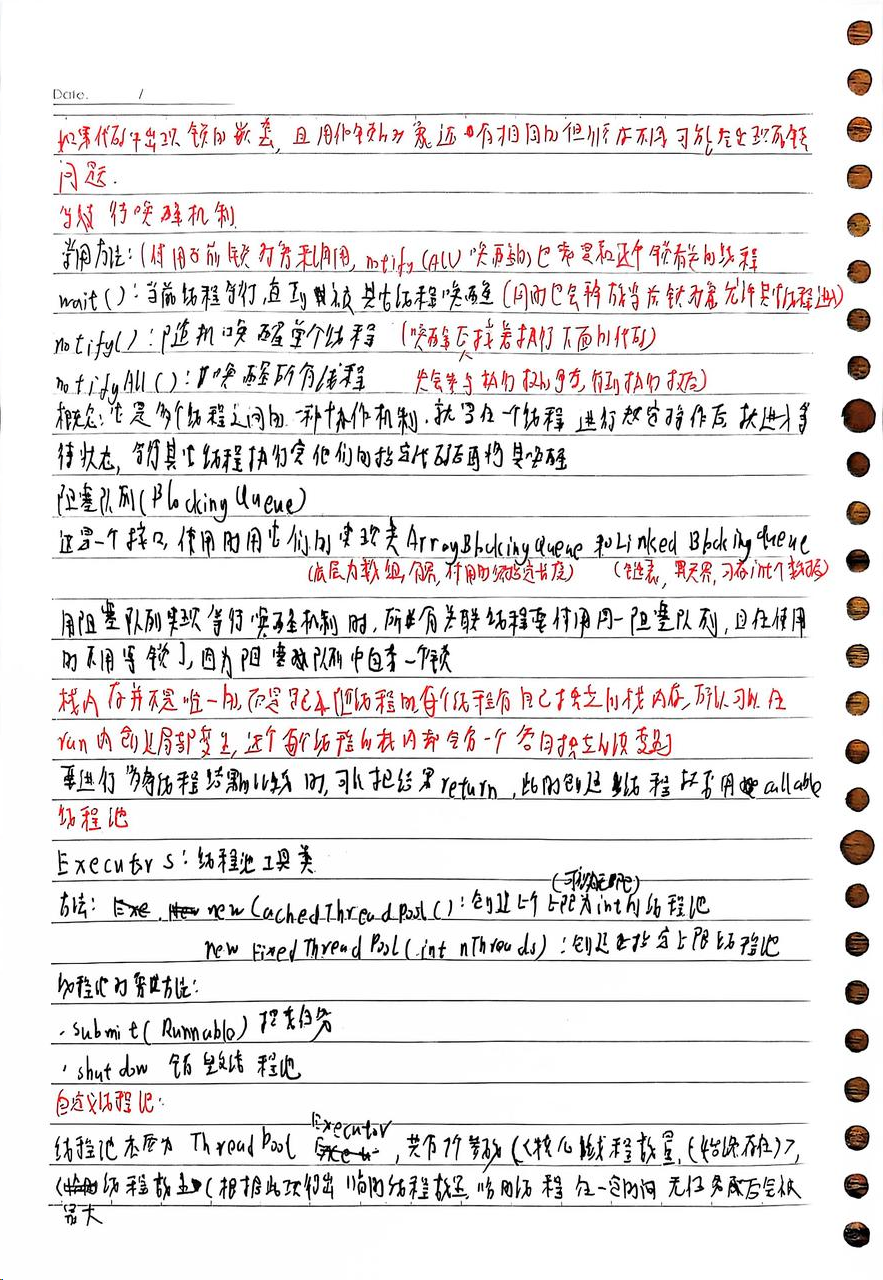 Date. /
如果代码中出现锁的嵌套,且用作锁的对象还有相同的但顺序不同可能会出现死锁
问题.
等待唤醒机制
常用方法:(使用当前锁对象来调用, notify(All)唤醒的也需是和这个锁有关的线程
wait():当前线程等待,直到被其它线程唤醒(同时也会释放当前锁对象允许其它线程进入)
notify():随机唤醒单个线程 (唤醒后接着执行下面的代码)
notifyAll():唤醒所有线程 先会参与执行权的争夺,有了执行权后)
概念:它是多个线程之间的一种协作机制.就是在一个线程进行规定操作后就进入等
待状态,等待其它线程执行完他们的指定代码后再将其唤醒
阻塞队列(Blocking Queue)
这是一个接口,使用时用它们的实现类ArrayBlockingQueue和LinkedBlockingQueue
(底层为数组,有界,使用时须指定长度) (链表,界,可存int个数据)
用阻塞队列实现等待唤醒机制时,所有关联线程要使用同一阻塞队列,且在使用
时不用写锁了,因为阻塞队列中自带一个锁
栈内存并不是唯一的,而是线程的,每个线程有自己独立的栈内存,所以可以在
run内创建局部变量,这个每个线程的栈内都会有一个各自独立的该变量
要进行多线程结果的比较时,可以把结果return,此时创建线程就要用callable
线程池
Executors:线程池工具类
方法: newCachedThreadPool():创建上限为int的线程池
newFixedThreadPool(int nThreads):创建指定上限线程池
线程池对象方法:
·submit(Runnable) 提交任务
·shutdow 销毁线程池
自定义线程池:
线程池本质为 ThreadPool Executor,共有7个参数(<核心线程数量,(始终存在)>,
<最大线程数量(根据此项得出临时线程数量,临时线程在一定时间无任务后会被